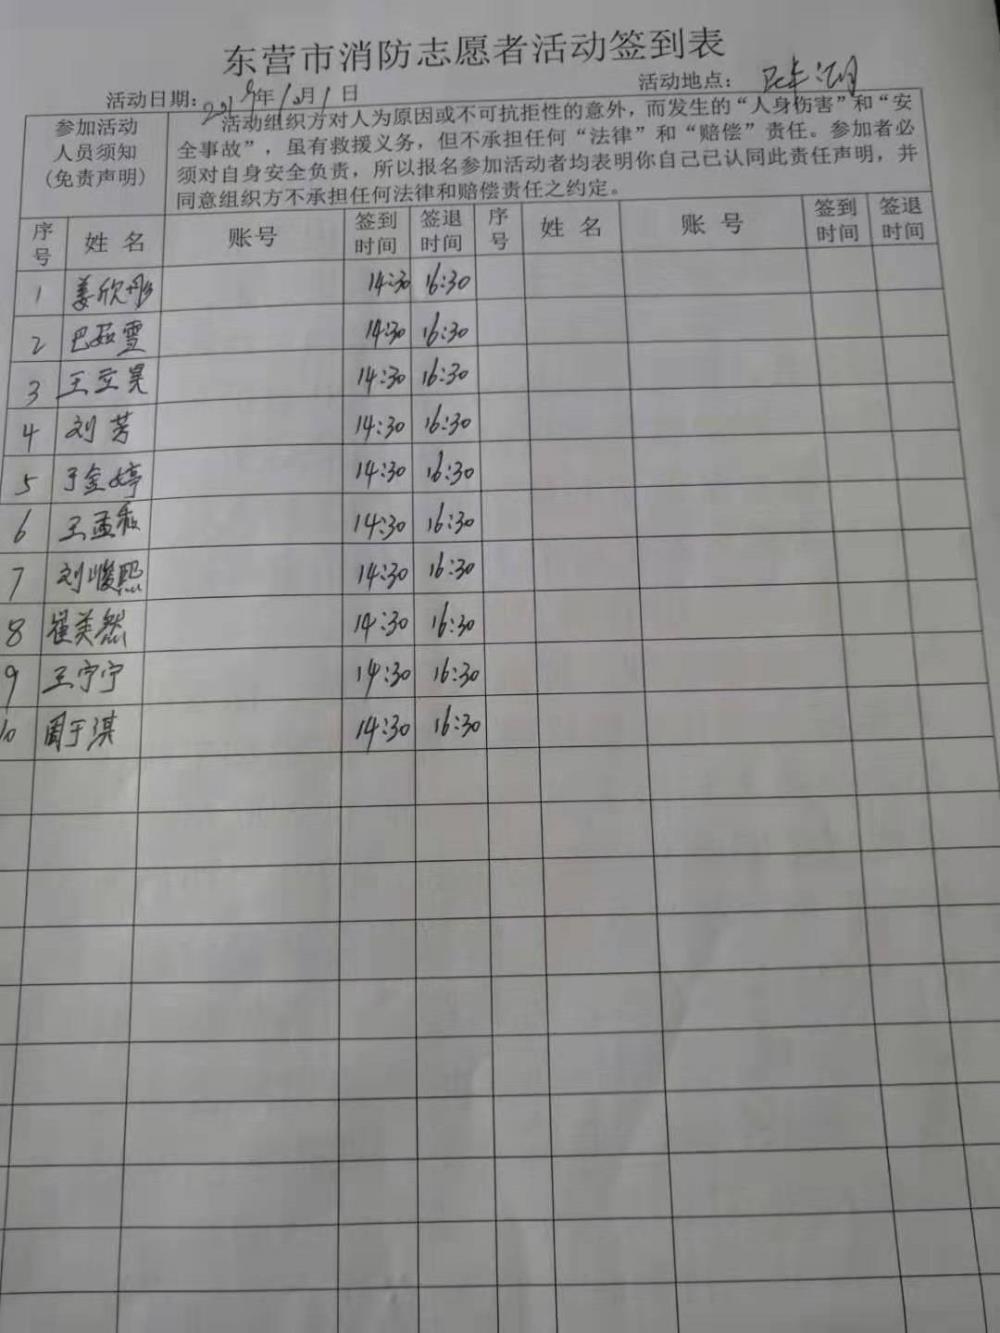 东营市消防志愿者活动签到表
活动日期：2019年10月1日 活动地点：
参加活动
人员须知
(免责声明)
活动组织方对人为原因或不可抗拒性的意外，而发生的“人身伤害”和“安
全事故”，虽有救援义务，但不承担任何“法律”和“赔偿”责任。参加者必
须对自身安全负责，所以报名参加活动者均表明你自己已认同此责任声明，并
同意组织方不承担任何法律和赔偿责任之约定。
序号 姓名 账号 签到时间 签退时间 序号 姓名 账号 签到时间 签退时间
1 姜欣彤 14:30 16:30
2 巴茹雪 14:30 16:30
3 王立昊 14:30 16:30
4 刘芳 14:30 16:30
5 于金婷 14:30 16:30
6 王孟 14:30 16:30
7 刘峻熙 14:30 16:30
8 崔英然 14:30 16:30
9 王宁宁 14:30 16:30
10 周于淇 14:30 16:30